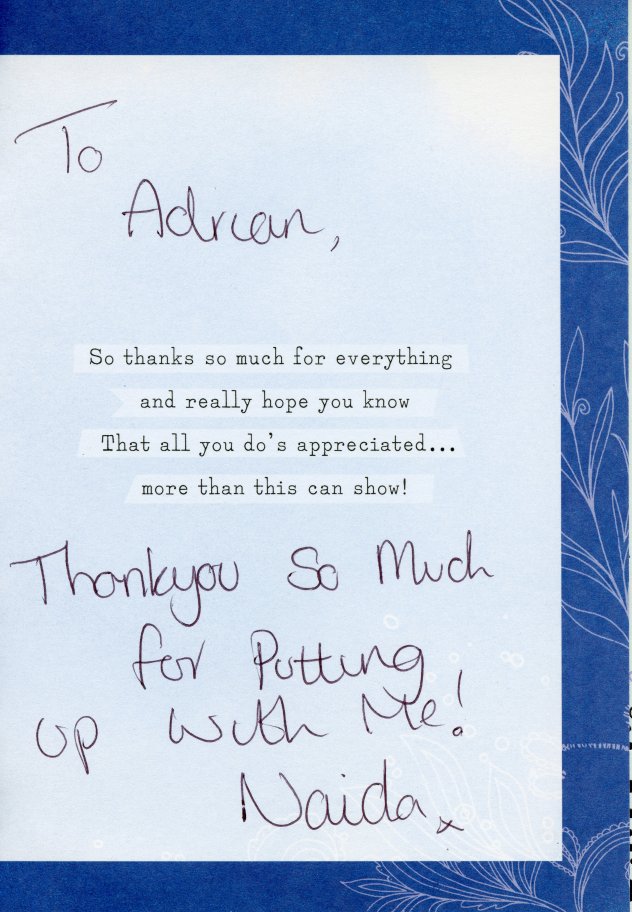 To
Adrian,
So thanks so much for everything
and really hope you know
That all you do's appreciated...
more than this can show!
Thankyou So Much
for Putting
up with Me!
Naida x